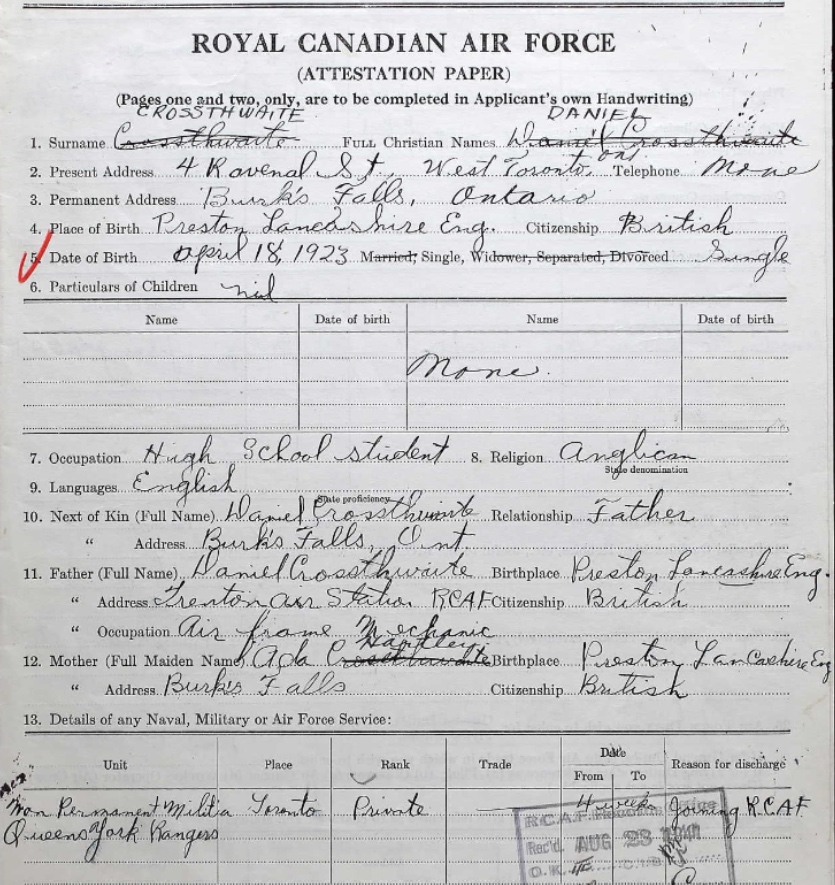 ROYAL CANADIAN AIR FORCE
(ATTESTATION PAPER)
(Pages one and two, only, are to be completed in Applicant's own Handwriting)
CROSSTHWAITE DANIEL
1. Surname Crossthwaite FULL Christian Names Daniel Crossthwaite
2. Present Address 4 Ravenal St. West Toronto, ont Telephone None
3. Permanent Address Burk's Falls, Ontario
4. Place of Birth Preston Lancashire Eng. Citizenship British
5. Date of Birth April 18, 1923 Married, Single, Widower, Separated, Divorced Single
6. Particulars of Children nil
Name Date of birth Name Date of birth
None.
7. Occupation High School student 8. Religion Anglican
State denomination
9. Languages English
State proficiency
10. Next of Kin (Full Name) Daniel Crossthwaite Relationship Father
" Address Burk's Falls, Ont
11. Father (Full Name) Daniel Crossthwaite Birthplace Preston Lancashire Eng.
" Address Trenton Air Station RCAF Citizenship British
" Occupation Air frame Mechanic
Hartley
12. Mother (Full Maiden Name) Ada Crossthwaite Birthplace Preston Lancashire Eng
" Address Burk's Falls Citizenship British
13. Details of any Naval, Military or Air Force Service:
Unit Place Rank Trade Date Reason for discharge
From To
Non Permanent Militia Toronto Private 4 weeks Joining R.C.A.F
Queens York Rangers
R.C.A.F.
Rec'd. AUG 23 1941
O.K.